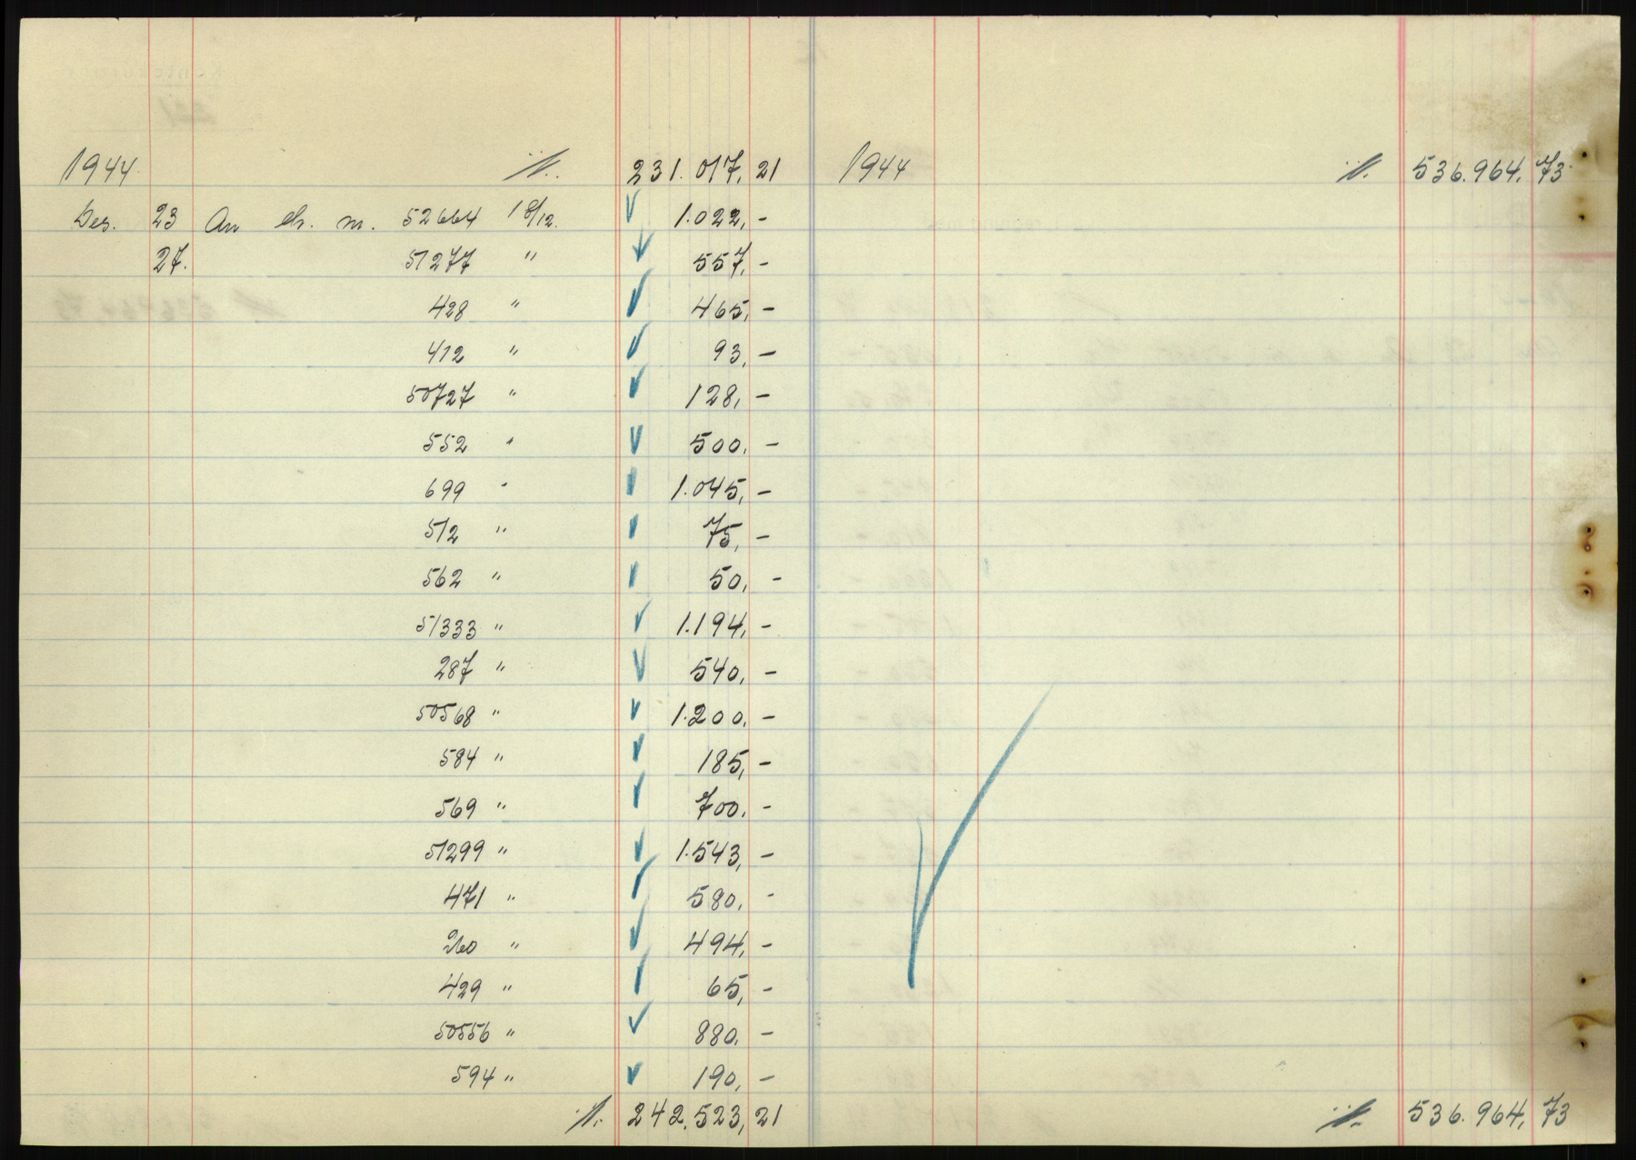 1944 231.017,21 1944 536.964,73
Des. 23 An ch. nr. 52664 18/12. 1.022,-
27. 51277 " 557,-
428 " 465,-
412 " 93,-
50727 " 128,-
552 " 500,-
699 " 1.045,-
512 " 75,-
562 " 50,-
51333 " 1.194,-
287 " 540,-
50568 " 1.200,-
584 " 185,-
569 " 700,-
51299 " 1.543,-
471 " 580,-
260 " 494,-
429 " 65,-
50556 " 880,-
594 " 190,-
242.523,21 536.964,73